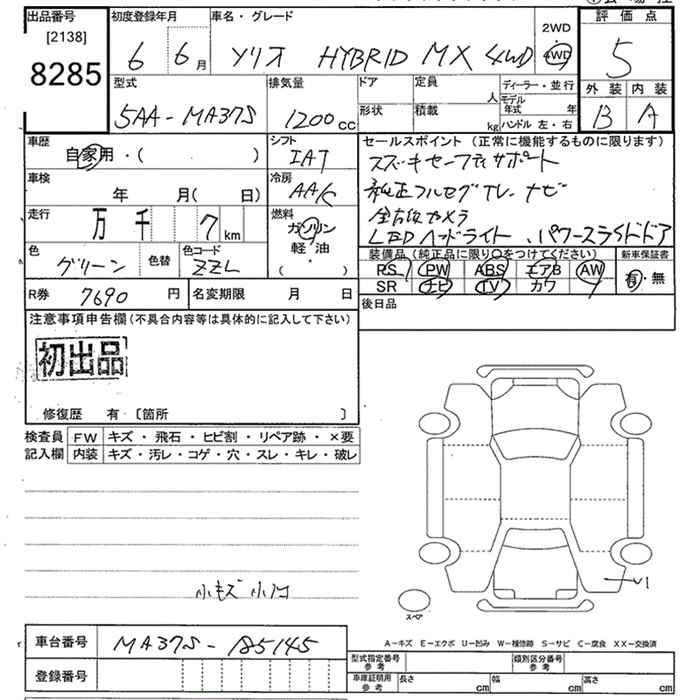 出品番号 初度登録年月 車名・グレード 評価点
[2138] 8285
6 6月 ソリオ HYBRID MX 4WD 2WD 4WD 5
型式 排気量 ドア 定員 人 ディーラー・並行 外装 内装
5AA-MA37S 1200cc 形状 積載 kg モデル年式 年 ハンドル 左・右 B A
車歴 シフト セールスポイント (正常に機能するものに限ります)
自家用・( ) IAT スズキセーフティサポート
車検 年 月( 日) 冷房 AAC 純正フルセグTV、ナビ
走行 万 千 7 km 燃料 ガソリン 軽・油 ( ) 全方位カメラ
LEDヘッドライト、パワースライドドア
色 グリーン 色替 色コード ZZL
装備品 (純正品に限り○をつけてください) 新車保証書
RS PW ABS エアB AW 有・無
SR ナビ TV カワ
R券 7690 円 名変期限 月 日
後日品
注意事項申告欄(不具合内容等は具体的に記入して下さい)
初出品
修復歴 有 〔箇所 〕
検査員 FW キズ・飛石・ヒビ割・リペア跡・×要
記入欄 内装 キズ・汚レ・コゲ・穴・スレ・キレ・破レ
小キズ 小凹
v1
スペア
A-キズ E-エクボ U-凹み W-補修跡 S-サビ C-腐食 XX-交換済
車台番号 MA37S-185145
型式指定番号 参考 類別区分番号 参考
登録番号
車庫証明用 参考 長さ cm 幅 cm 高さ cm